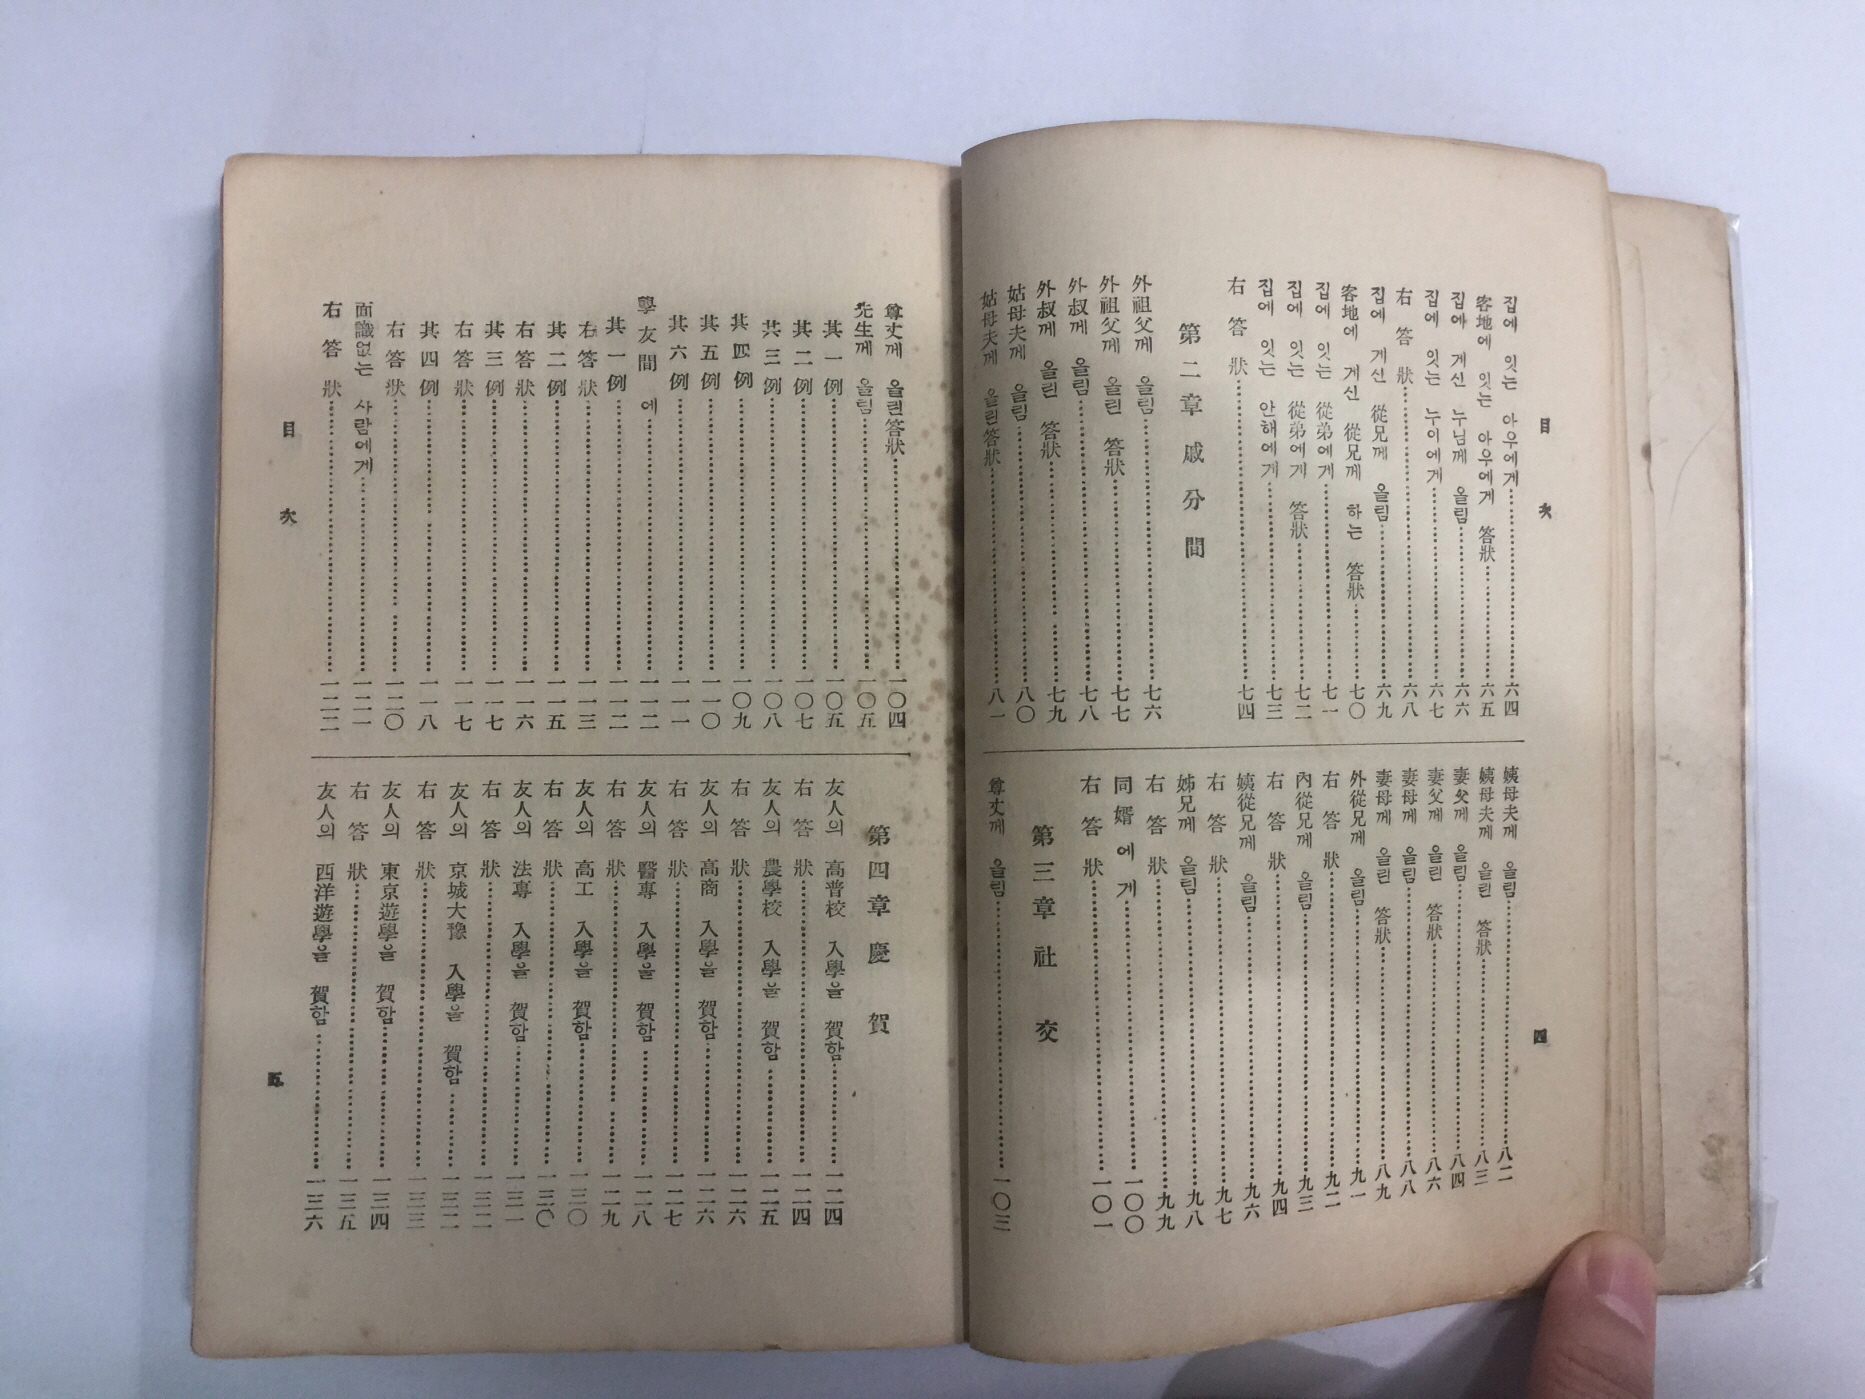 目次
四
집에 잇는 아우에게……六四
客地에 잇는 아우에게 答狀……六五
집에 게신 누님께 올림……六六
집에 잇는 누이에게……六七
右答狀……六八
집에 게신 從兄께 올림……六九
客地에 게신 從兄께 하는 答狀……七〇
집에 잇는 從弟에게……七一
집에 잇는 從弟에게 答狀……七二
집에 잇는 안해에게……七三
右答狀……七四
第二章 戚分間
外祖父께 올림……七六
外祖父께 올린 答狀……七七
外叔께 올림……七八
外叔께 올린 答狀……七九
姑母夫께 올림……八〇
姑母夫께 올린答狀……八一
姨母夫께 올림……八二
姨母夫께 올린 答狀……八三
妻父께 올림……八四
妻父께 올린 答狀……八六
妻母께 올림……八八
妻母께 올린 答狀……八九
外從兄께 올림……九一
右答狀……九二
內從兄께 올림……九三
右答狀……九四
姨從兄께 올림……九六
右答狀……九七
姊兄께 올림……九八
右答狀……九九
同婿에게……一〇〇
右答狀……一〇一
第三章 社交
尊丈께 올림……一〇三
尊丈께 올린答狀……一〇四
先生께 올림……一〇五
其一例……一〇五
其二例……一〇七
其三例……一〇八
其四例……一〇九
其五例……一一〇
其六例……一一一
學友間에……一一二
其一例……一一二
右答狀……一一三
其二例……一一五
右答狀……一一六
其三例……一一七
右答狀……一一七
其四例……一一八
右答狀……一二〇
面識없는 사람에게……一二一
右答狀……一二二
第四章 慶賀
友人의 高普校 入學을 賀함……一二四
右答狀……一二四
友人의 農學校 入學을 賀함……一二五
右答狀……一二六
友人의 高商 入學을 賀함……一二六
右答狀……一二七
友人의 醫專 入學을 賀함……一二八
右答狀……一二九
友人의 高工 入學을 賀함……一三〇
右答狀……一三〇
友人의 法專 入學을 賀함……一三一
右答狀……一三二
友人의 京城大豫 入學을 賀함……一三二
右答狀……一三三
友人의 東京遊學을 賀함……一三四
右答狀……一三五
友人의 西洋遊學을 賀함……一三六
目次
五